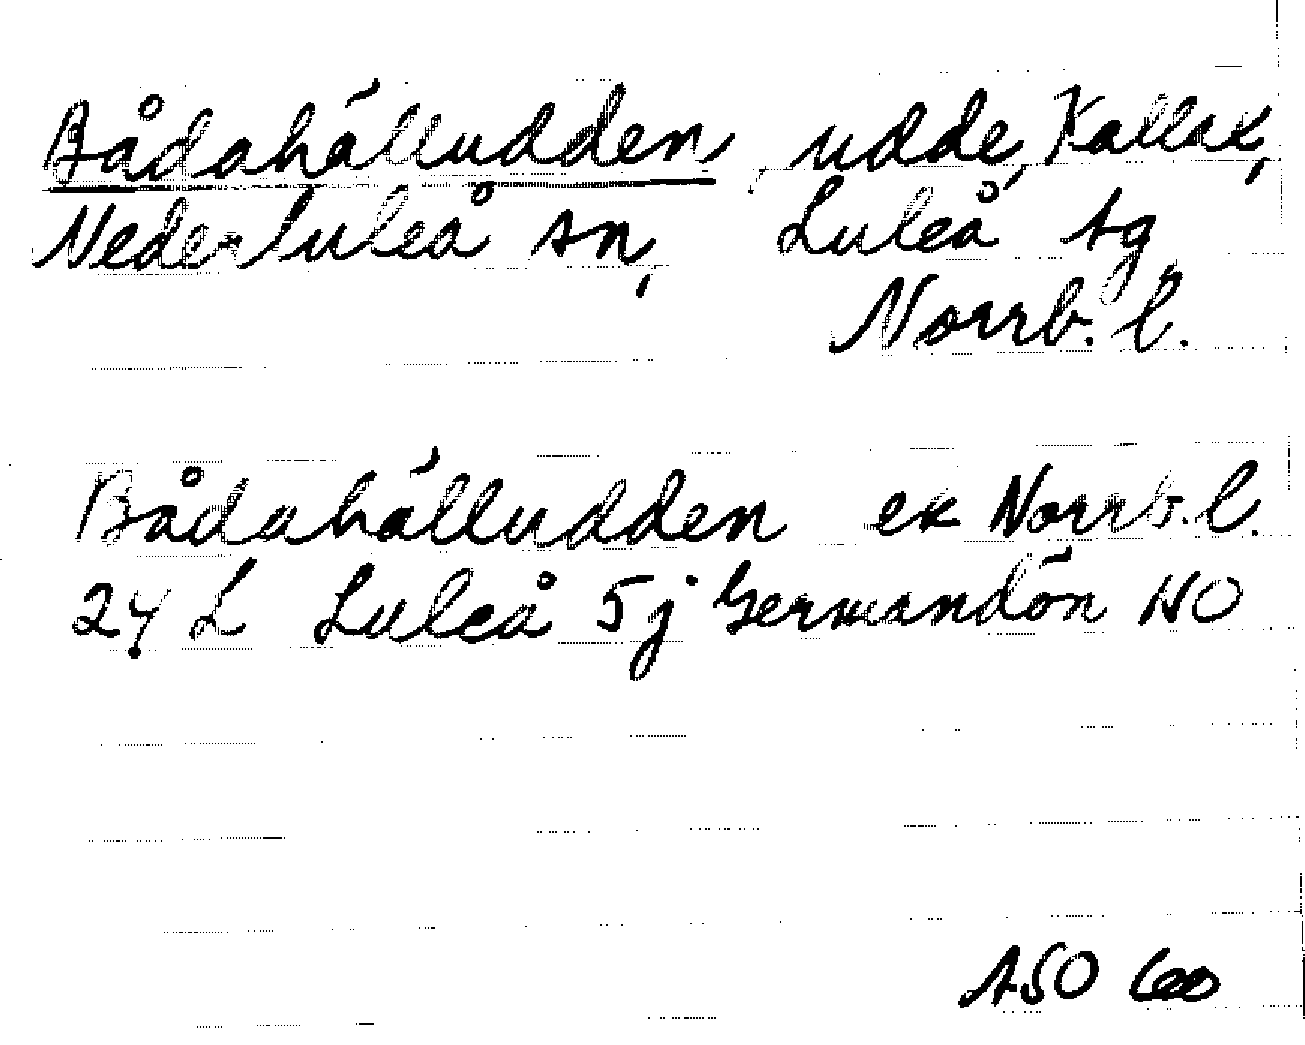 Bådahälludden, udde, Kallax,
Nederluleå sn, Luleå tg
Norrb. l.
Bådahälludden ek Norrb. l.
24 L Luleå 5j Germandön NO
ASO